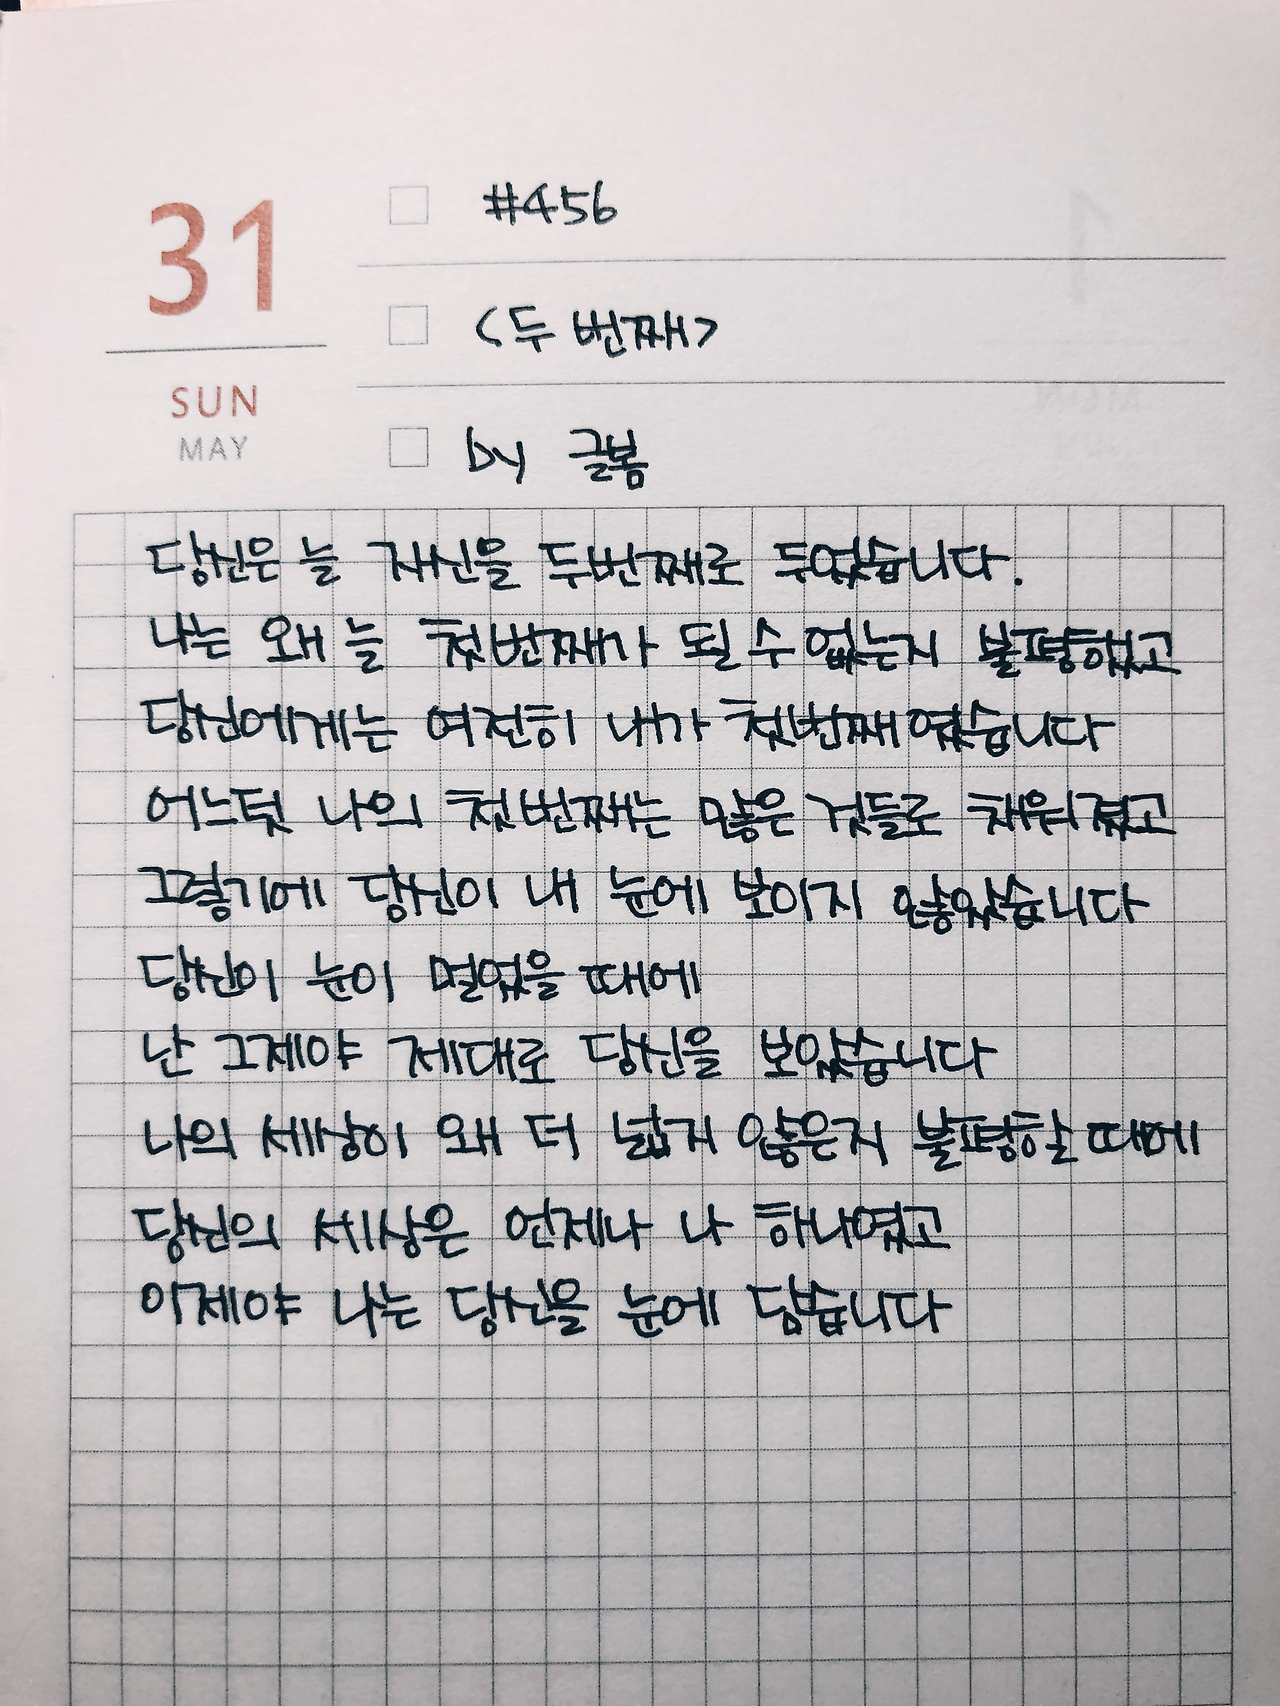 31
SUN
MAY
#456
<두 번째>
by 글봄
당신은 늘 자신을 두번째로 두었습니다.
나는 왜 늘 첫번째가 될 수 없는지 불평했고
당신에게는 여전히 내가 첫번째였습니다
어느덧 나의 첫번째는 많은 것들로 채워졌고
그렇기에 당신이 내 눈에 보이지 않았습니다
당신이 눈이 멀었을 때에
난 그제야 제대로 당신을 보았습니다
나의 세상이 왜 더 넓지 않은지 불평할 때에
당신의 세상은 언제나 나 하나였고
이제야 나는 당신을 눈에 담습니다